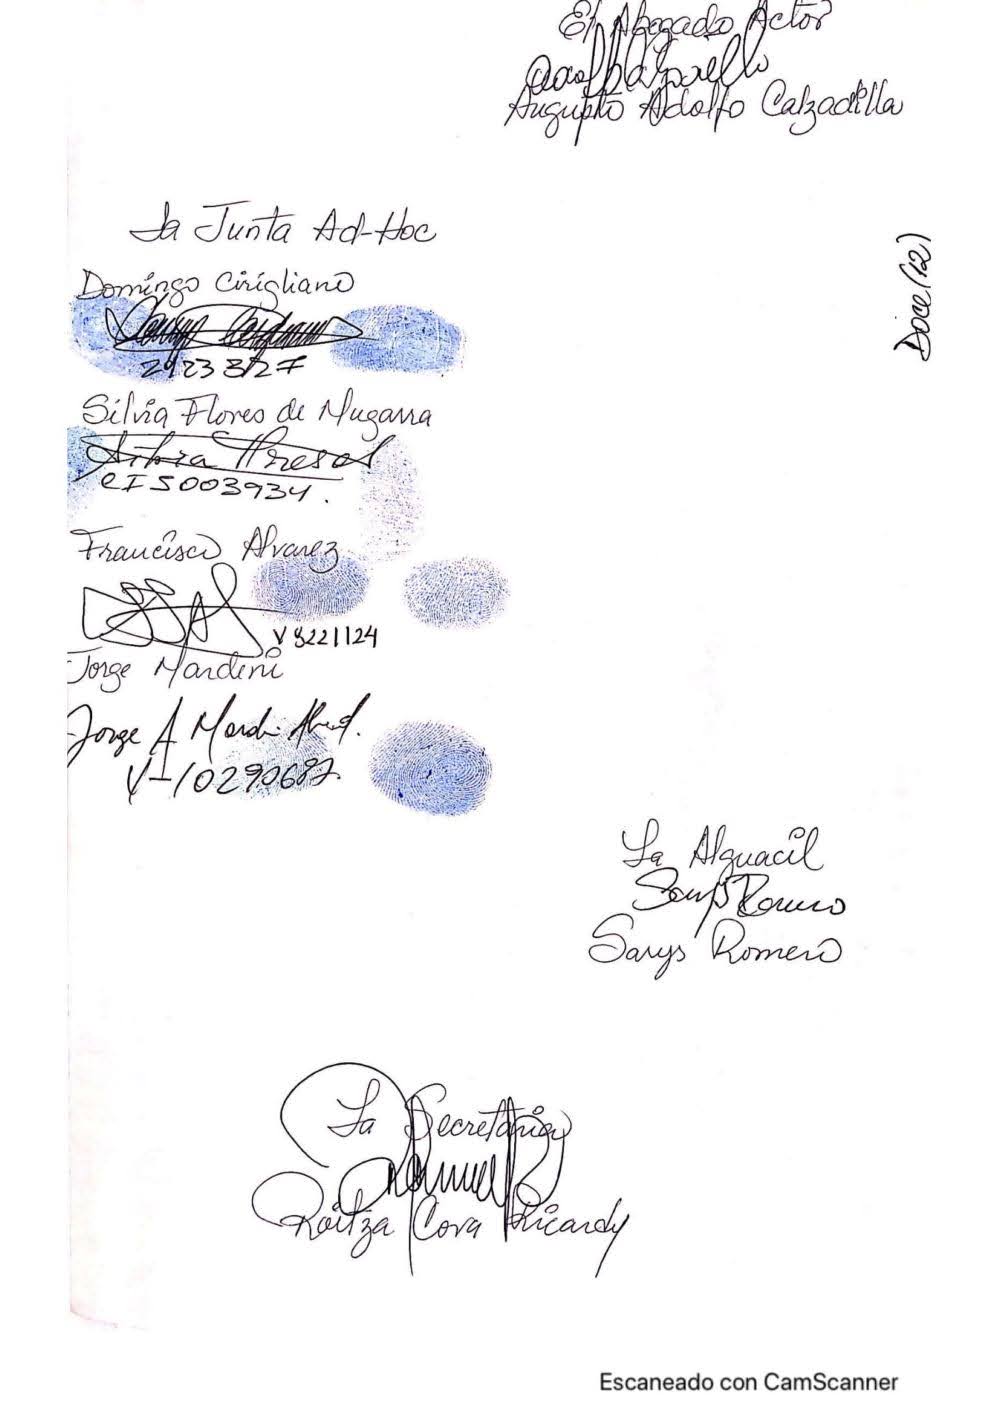 El Abogado Actor
Augupto Adolfo Calzadilla
Doce (12)
La Junta Ad-Hoc
Domingo Cirigliano
2923 327
Silvia Flores de Mugarra
CI 5003934.
Francisco Alvarez
V 8221124
Jorge Mardeni
Jorge A Mardi
V-10290687
La Alguacil
Sarys Romero
Sarys Romero
La Secretaria
Roitza Cova Ricardy
Escaneado con CamScanner